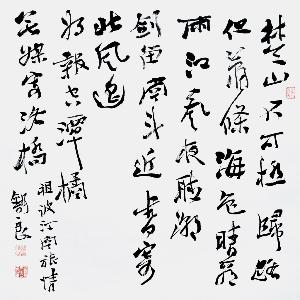 楚山不可極歸路
但蕭條海色晴看
雨江聲夜聽潮
劍留南斗近書寄
北風遙
為報空潭橘
無媒寄洛橋
祖詠江南旅情